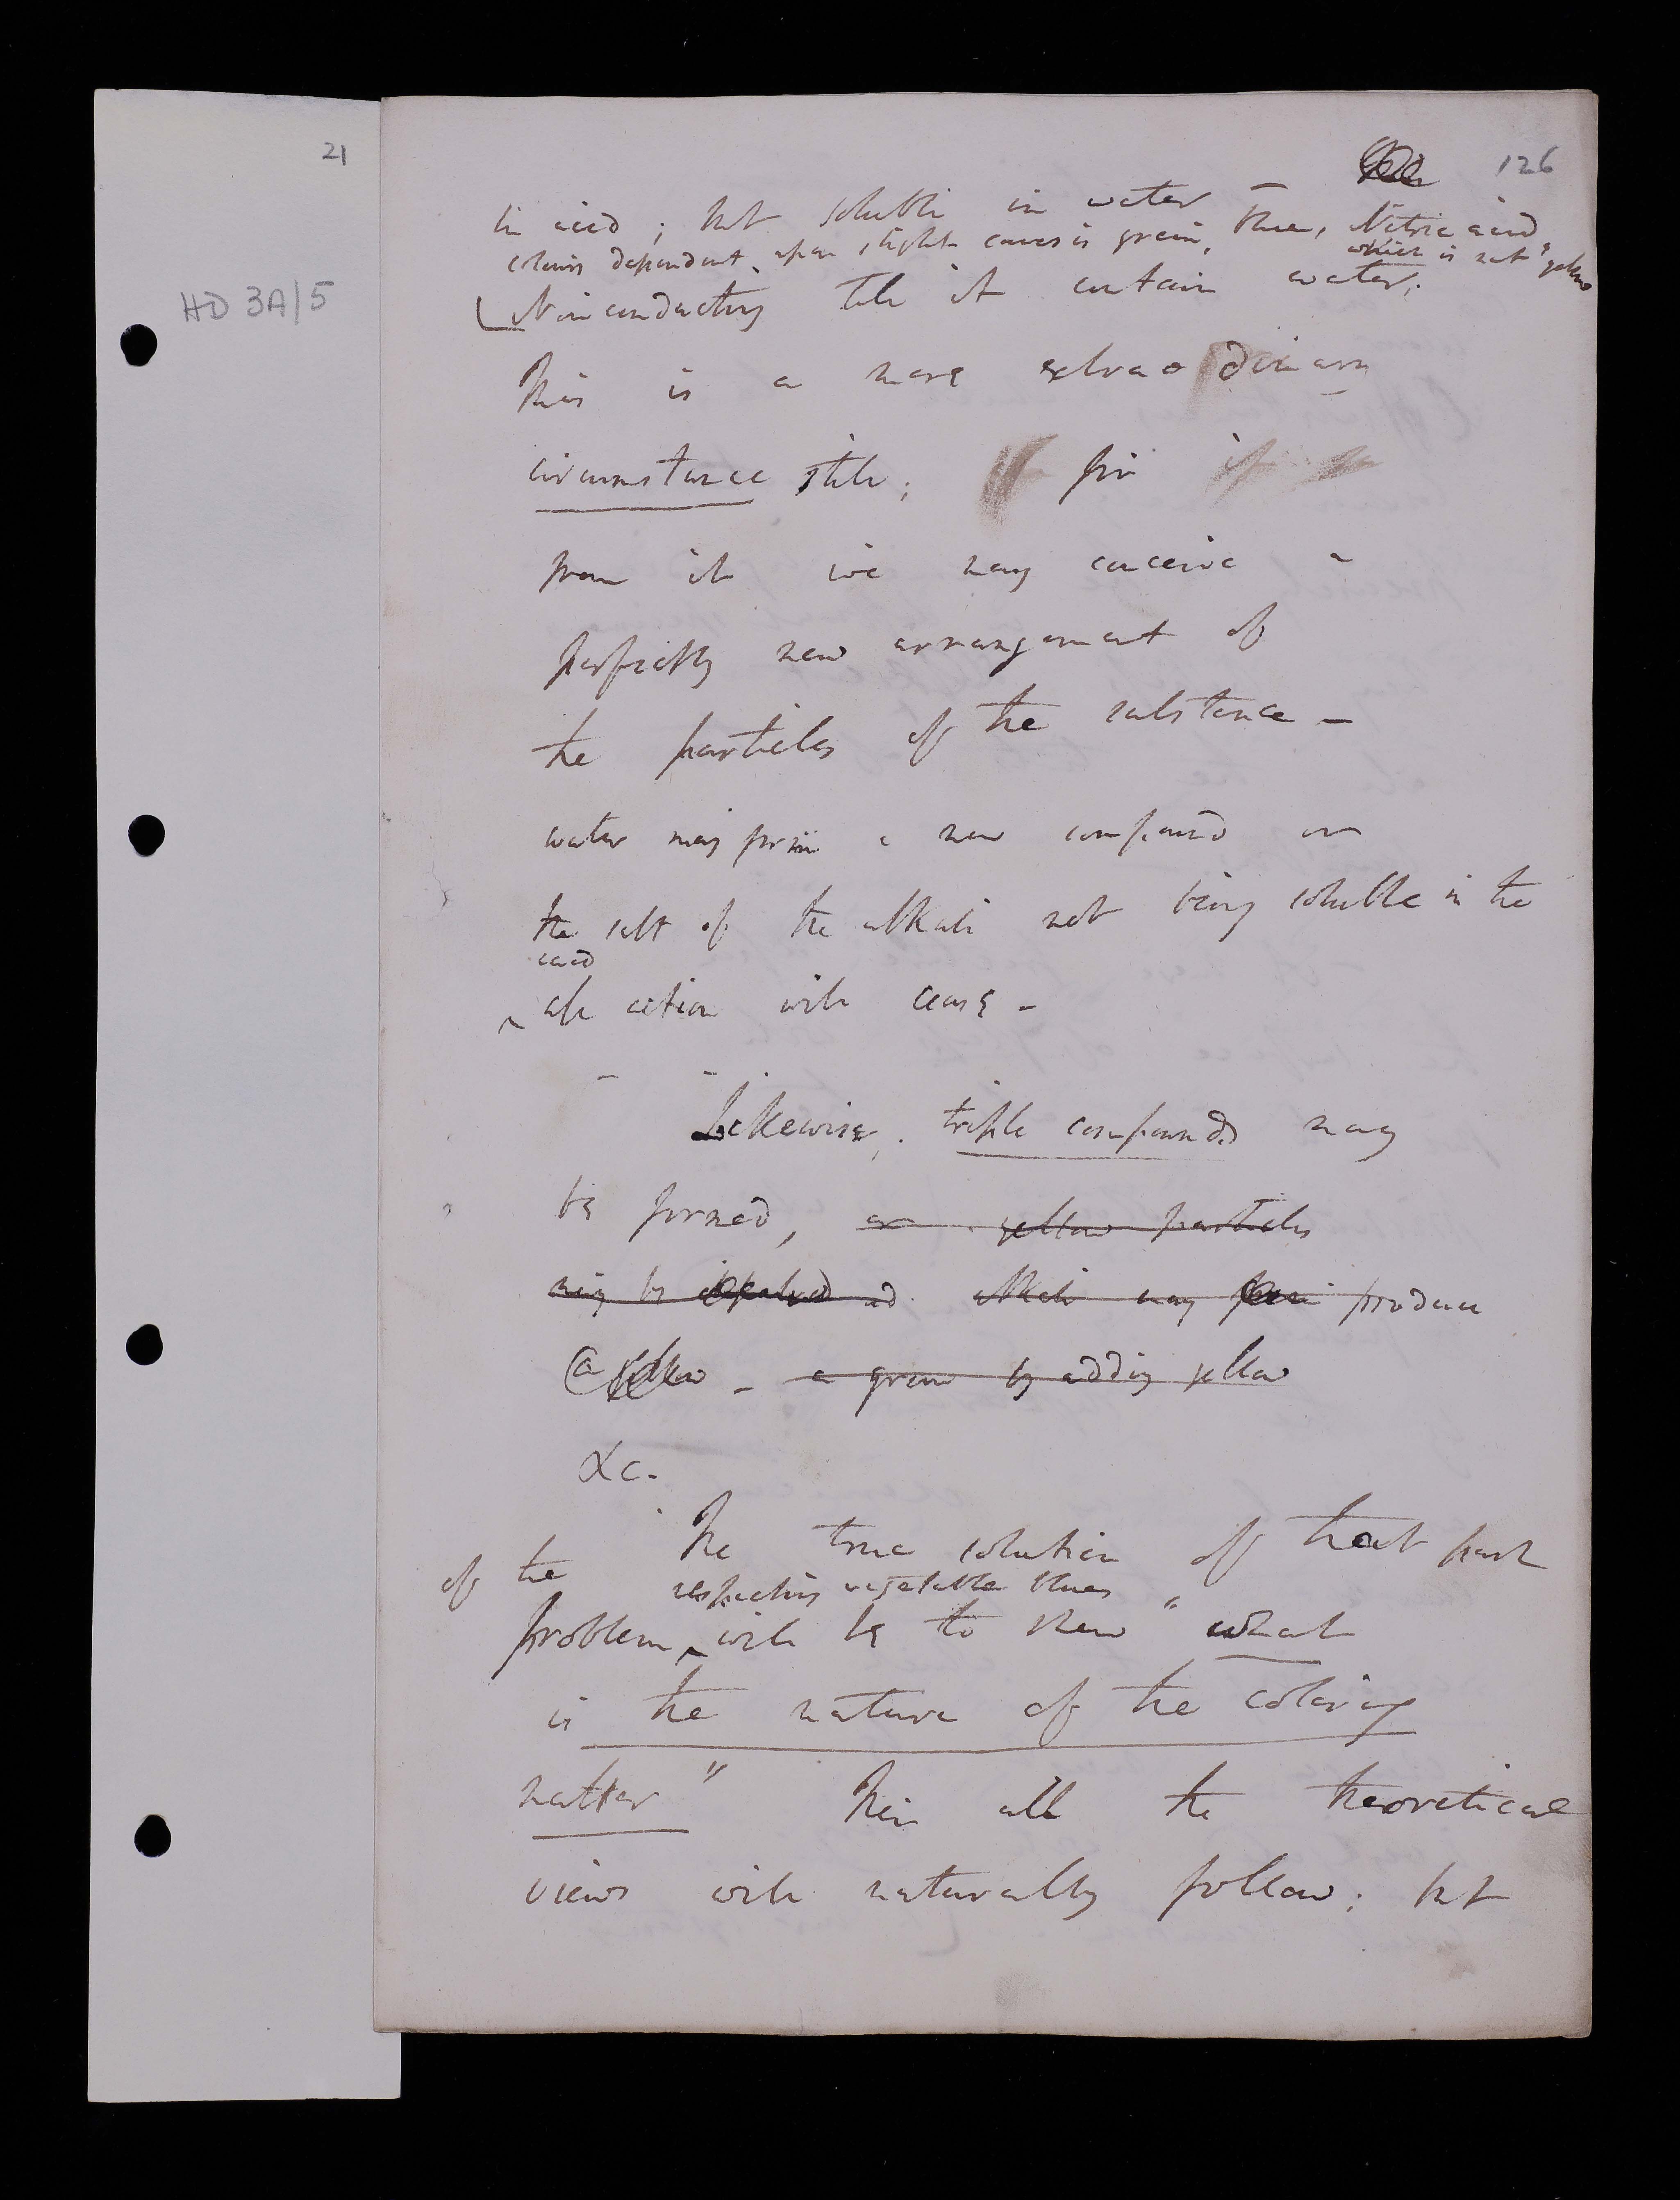 21
HD 3A/5
126
in acid; but soluble in water Thus, Nitric acid
colours dependent upon slight causes is green, which is not yellow
Non conducting till it contain water;
This is a more extraordinary
circumstance still; for if
from it we may conceive a
perfectly new arrangement of
the particles of the substance -
water may form a new compound or
the salt of the alkali not being soluble in the
acid
all action will cease -
Likewise, triple compounds may
be formed, or yellow particles
may be and alkali may form produce
a yellow - a green by adding yellow
&c.
The true solution of that part
of the
respecting vegetable blues
problem will be to shew "what
is the nature of the coloring
matter" Then all the theoretical
views will naturally follow; but